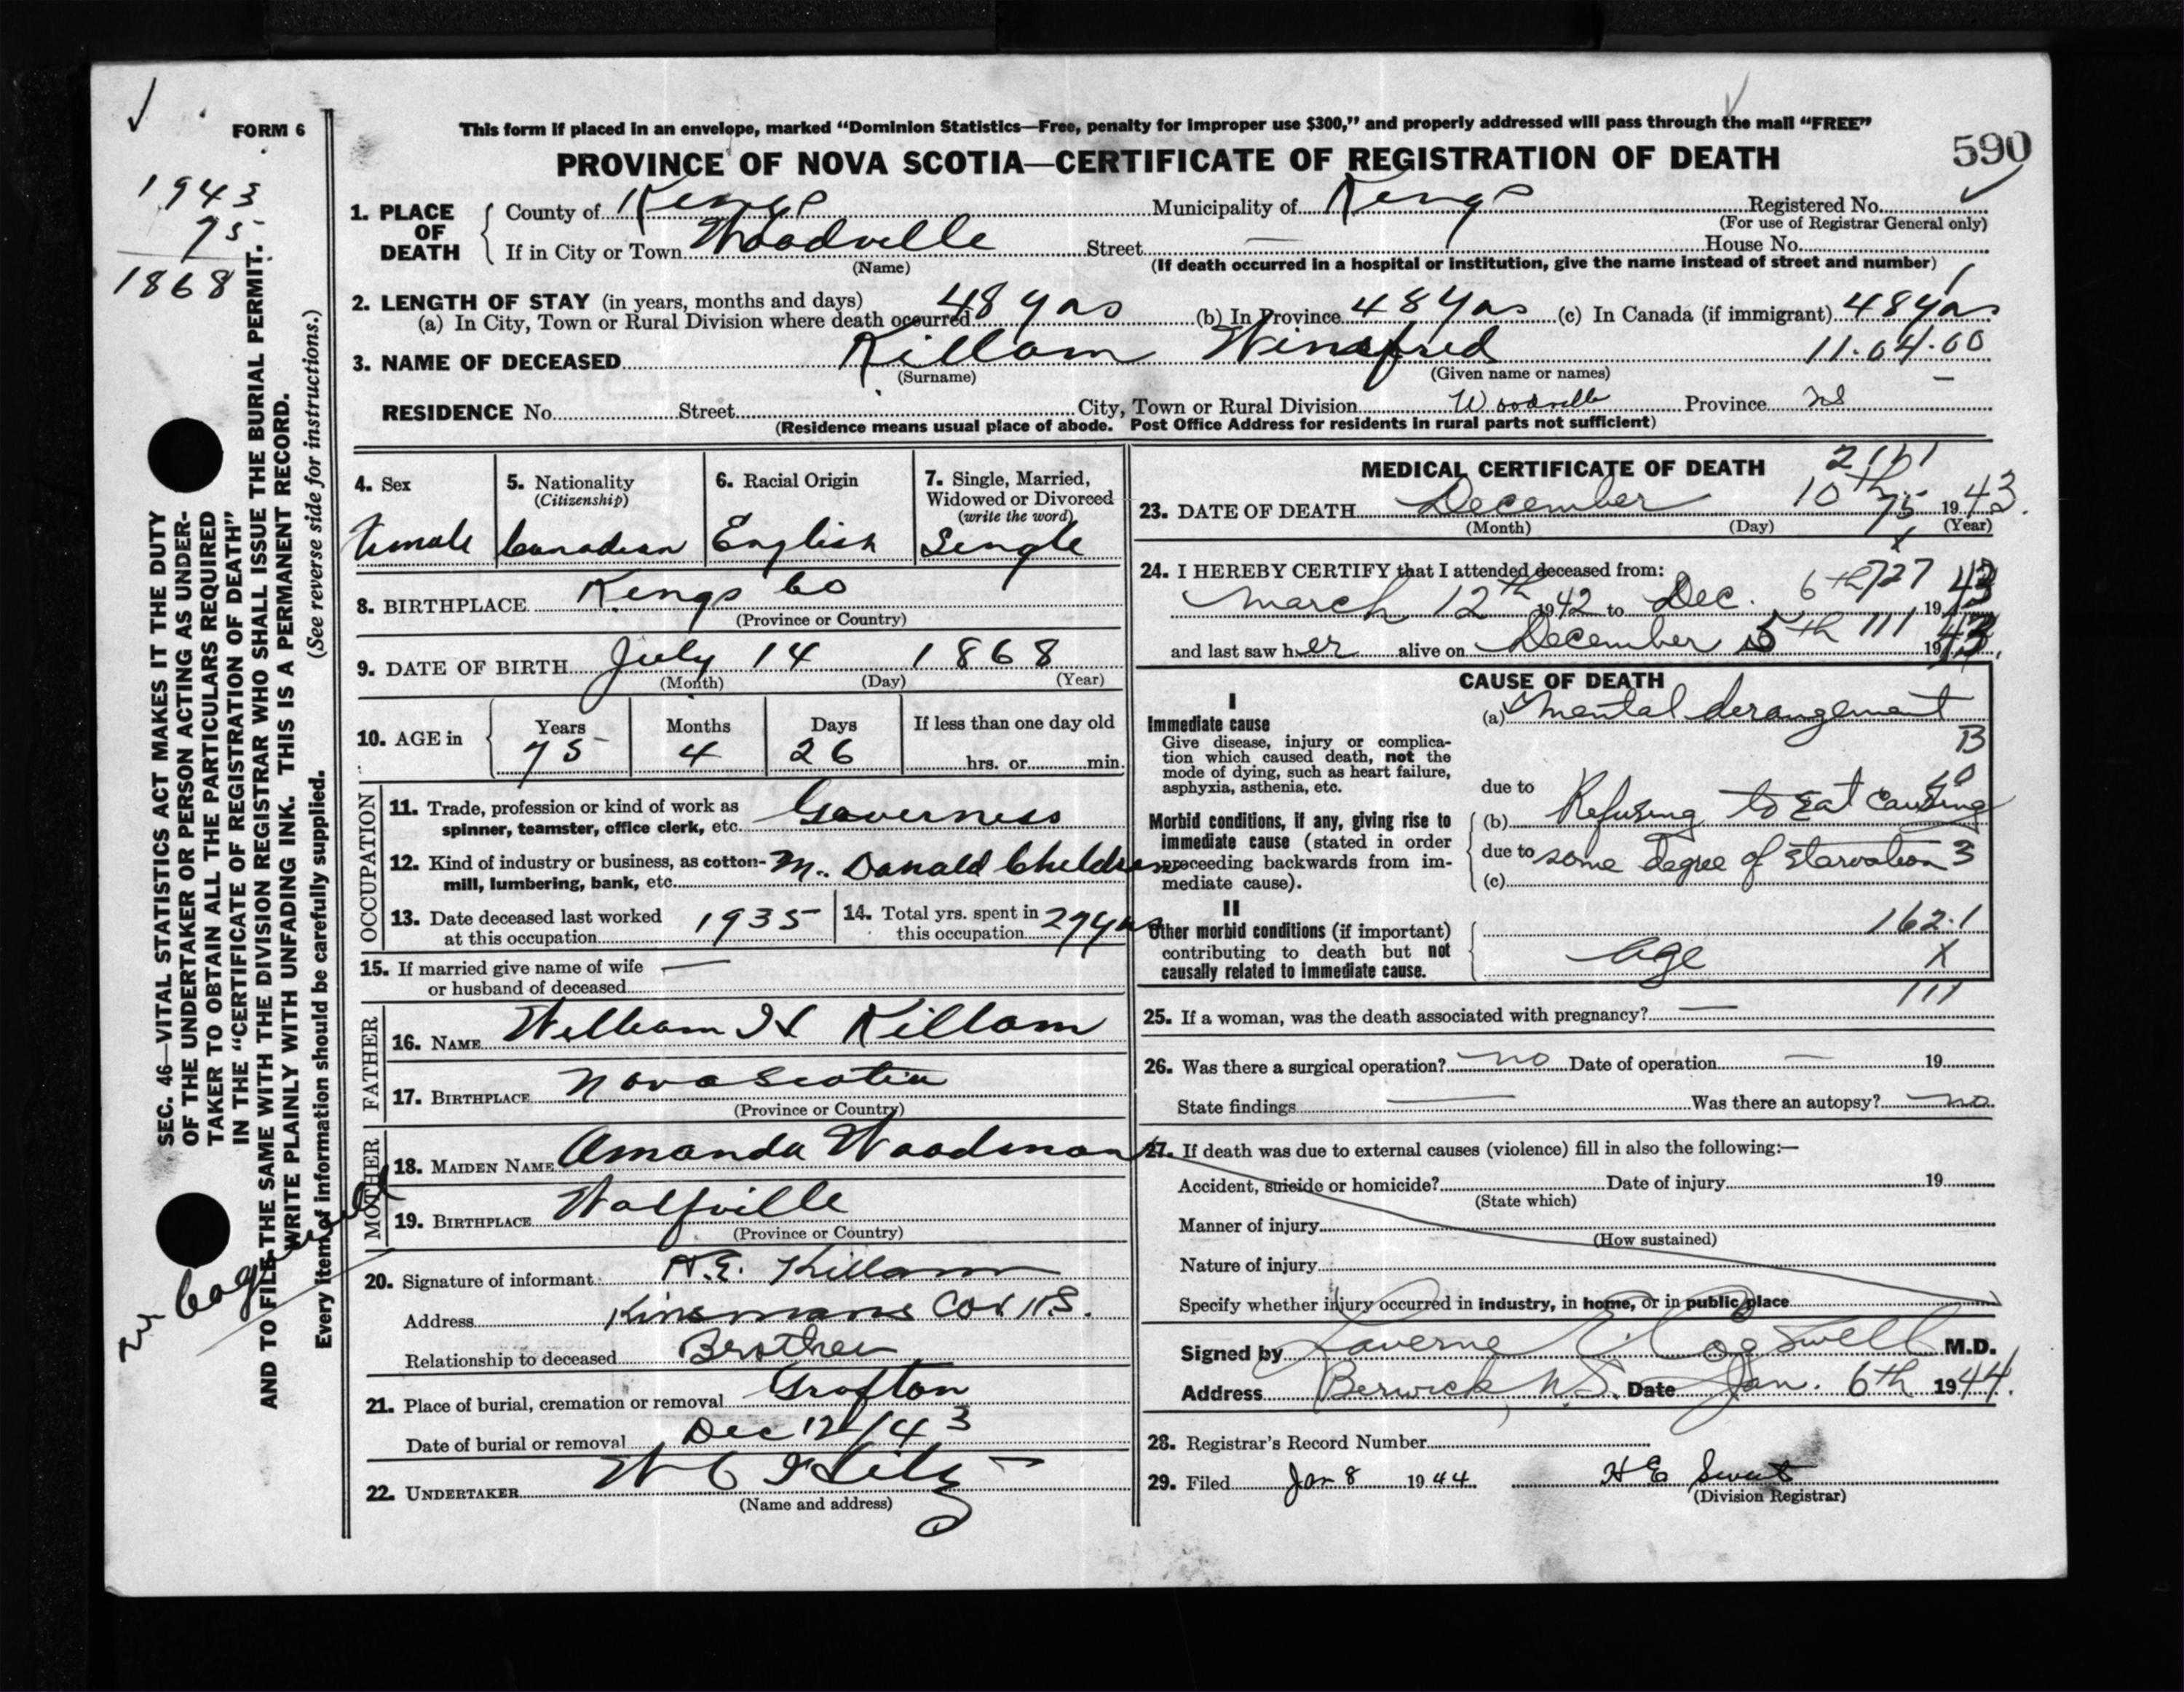 FORM 6
This form if placed in an envelope, marked “Dominion Statistics—Free, penalty for improper use $300,” and properly addressed will pass through the mail “FREE”
PROVINCE OF NOVA SCOTIA—CERTIFICATE OF REGISTRATION OF DEATH
590
1943
75
1868
1. PLACE OF DEATH
County of Kings Municipality of Kings Registered No.
(For use of Registrar General only)
If in City or Town Woodville Street — House No.
(Name) (If death occurred in a hospital or institution, give the name instead of street and number)
2. LENGTH OF STAY (in years, months and days)
(a) In City, Town or Rural Division where death occurred 48 yrs (b) In Province 48 yrs (c) In Canada (if immigrant) 48 yrs
3. NAME OF DECEASED Killam Winifred 11.04.00
(Surname) (Given name or names)
RESIDENCE No. Street City, Town or Rural Division Woodville Province NS
(Residence means usual place of abode. Post Office Address for residents in rural parts not sufficient)
4. Sex
Female
5. Nationality
(Citizenship)
Canadian
6. Racial Origin
English
7. Single, Married,
Widowed or Divorced
(write the word)
Single
8. BIRTHPLACE Kings Co
(Province or Country)
9. DATE OF BIRTH July 14 1868
(Month) (Day) (Year)
10. AGE in
Years Months Days If less than one day old
75 4 26 hrs. or min.
OCCUPATION
11. Trade, profession or kind of work as
spinner, teamster, office clerk, etc. Governess
12. Kind of industry or business, as cotton-
mill, lumbering, bank, etc. Mc Donald Children
13. Date deceased last worked
at this occupation 1935
14. Total yrs. spent in
this occupation 27 yrs
15. If married give name of wife —
or husband of deceased
FATHER
16. NAME William H Killam
17. BIRTHPLACE Nova Scotia
(Province or Country)
MOTHER
18. MAIDEN NAME Amanda Woodman
19. BIRTHPLACE Wolfville
(Province or Country)
20. Signature of informant H.E. Killam
Address Kinsmans Cor N.S.
Relationship to deceased Brother
21. Place of burial, cremation or removal Grafton
Date of burial or removal Dec 12/43
22. UNDERTAKER
(Name and address)
MEDICAL CERTIFICATE OF DEATH
23. DATE OF DEATH December 10th 1943.
75
(Month) (Day) (Year)
24. I HEREBY CERTIFY that I attended deceased from:
March 12th 1942 to Dec. 6th 727 1943
and last saw her alive on December 5th 111 1943.
CAUSE OF DEATH
I
Immediate cause
Give disease, injury or complica-
tion which caused death, not the
mode of dying, such as heart failure,
asphyxia, asthenia, etc.
(a) Mental derangement
B
due to
Morbid conditions, if any, giving rise to
immediate cause (stated in order
proceeding backwards from im-
mediate cause).
(b) Refusing to Eat causing
due to some degree of starvation 3
(c)
II
Other morbid conditions (if important)
contributing to death but not
causally related to immediate cause.
162.1
Age X
111
25. If a woman, was the death associated with pregnancy? —
26. Was there a surgical operation? no Date of operation — 19
State findings — Was there an autopsy? no.
27. If death was due to external causes (violence) fill in also the following:—
Accident, suicide or homicide? Date of injury 19
(State which)
Manner of injury
(How sustained)
Nature of injury
Specify whether injury occurred in industry, in home, or in public place
Signed by Laverne E. Cogswell M.D.
Address Berwick, N.S. Date Jan. 6th 1944.
28. Registrar's Record Number
29. Filed Jan 8 1944
(Division Registrar)
SEC. 46—VITAL STATISTICS ACT MAKES IT THE DUTY
OF THE UNDERTAKER OR PERSON ACTING AS UNDER-
TAKER TO OBTAIN ALL THE PARTICULARS REQUIRED
IN THE “CERTIFICATE OF REGISTRATION OF DEATH”
AND TO FILE THE SAME WITH THE DIVISION REGISTRAR WHO SHALL ISSUE THE BURIAL PERMIT.
WRITE PLAINLY WITH UNFADING INK. THIS IS A PERMANENT RECORD.
Every item of information should be carefully supplied. (See reverse side for instructions.)